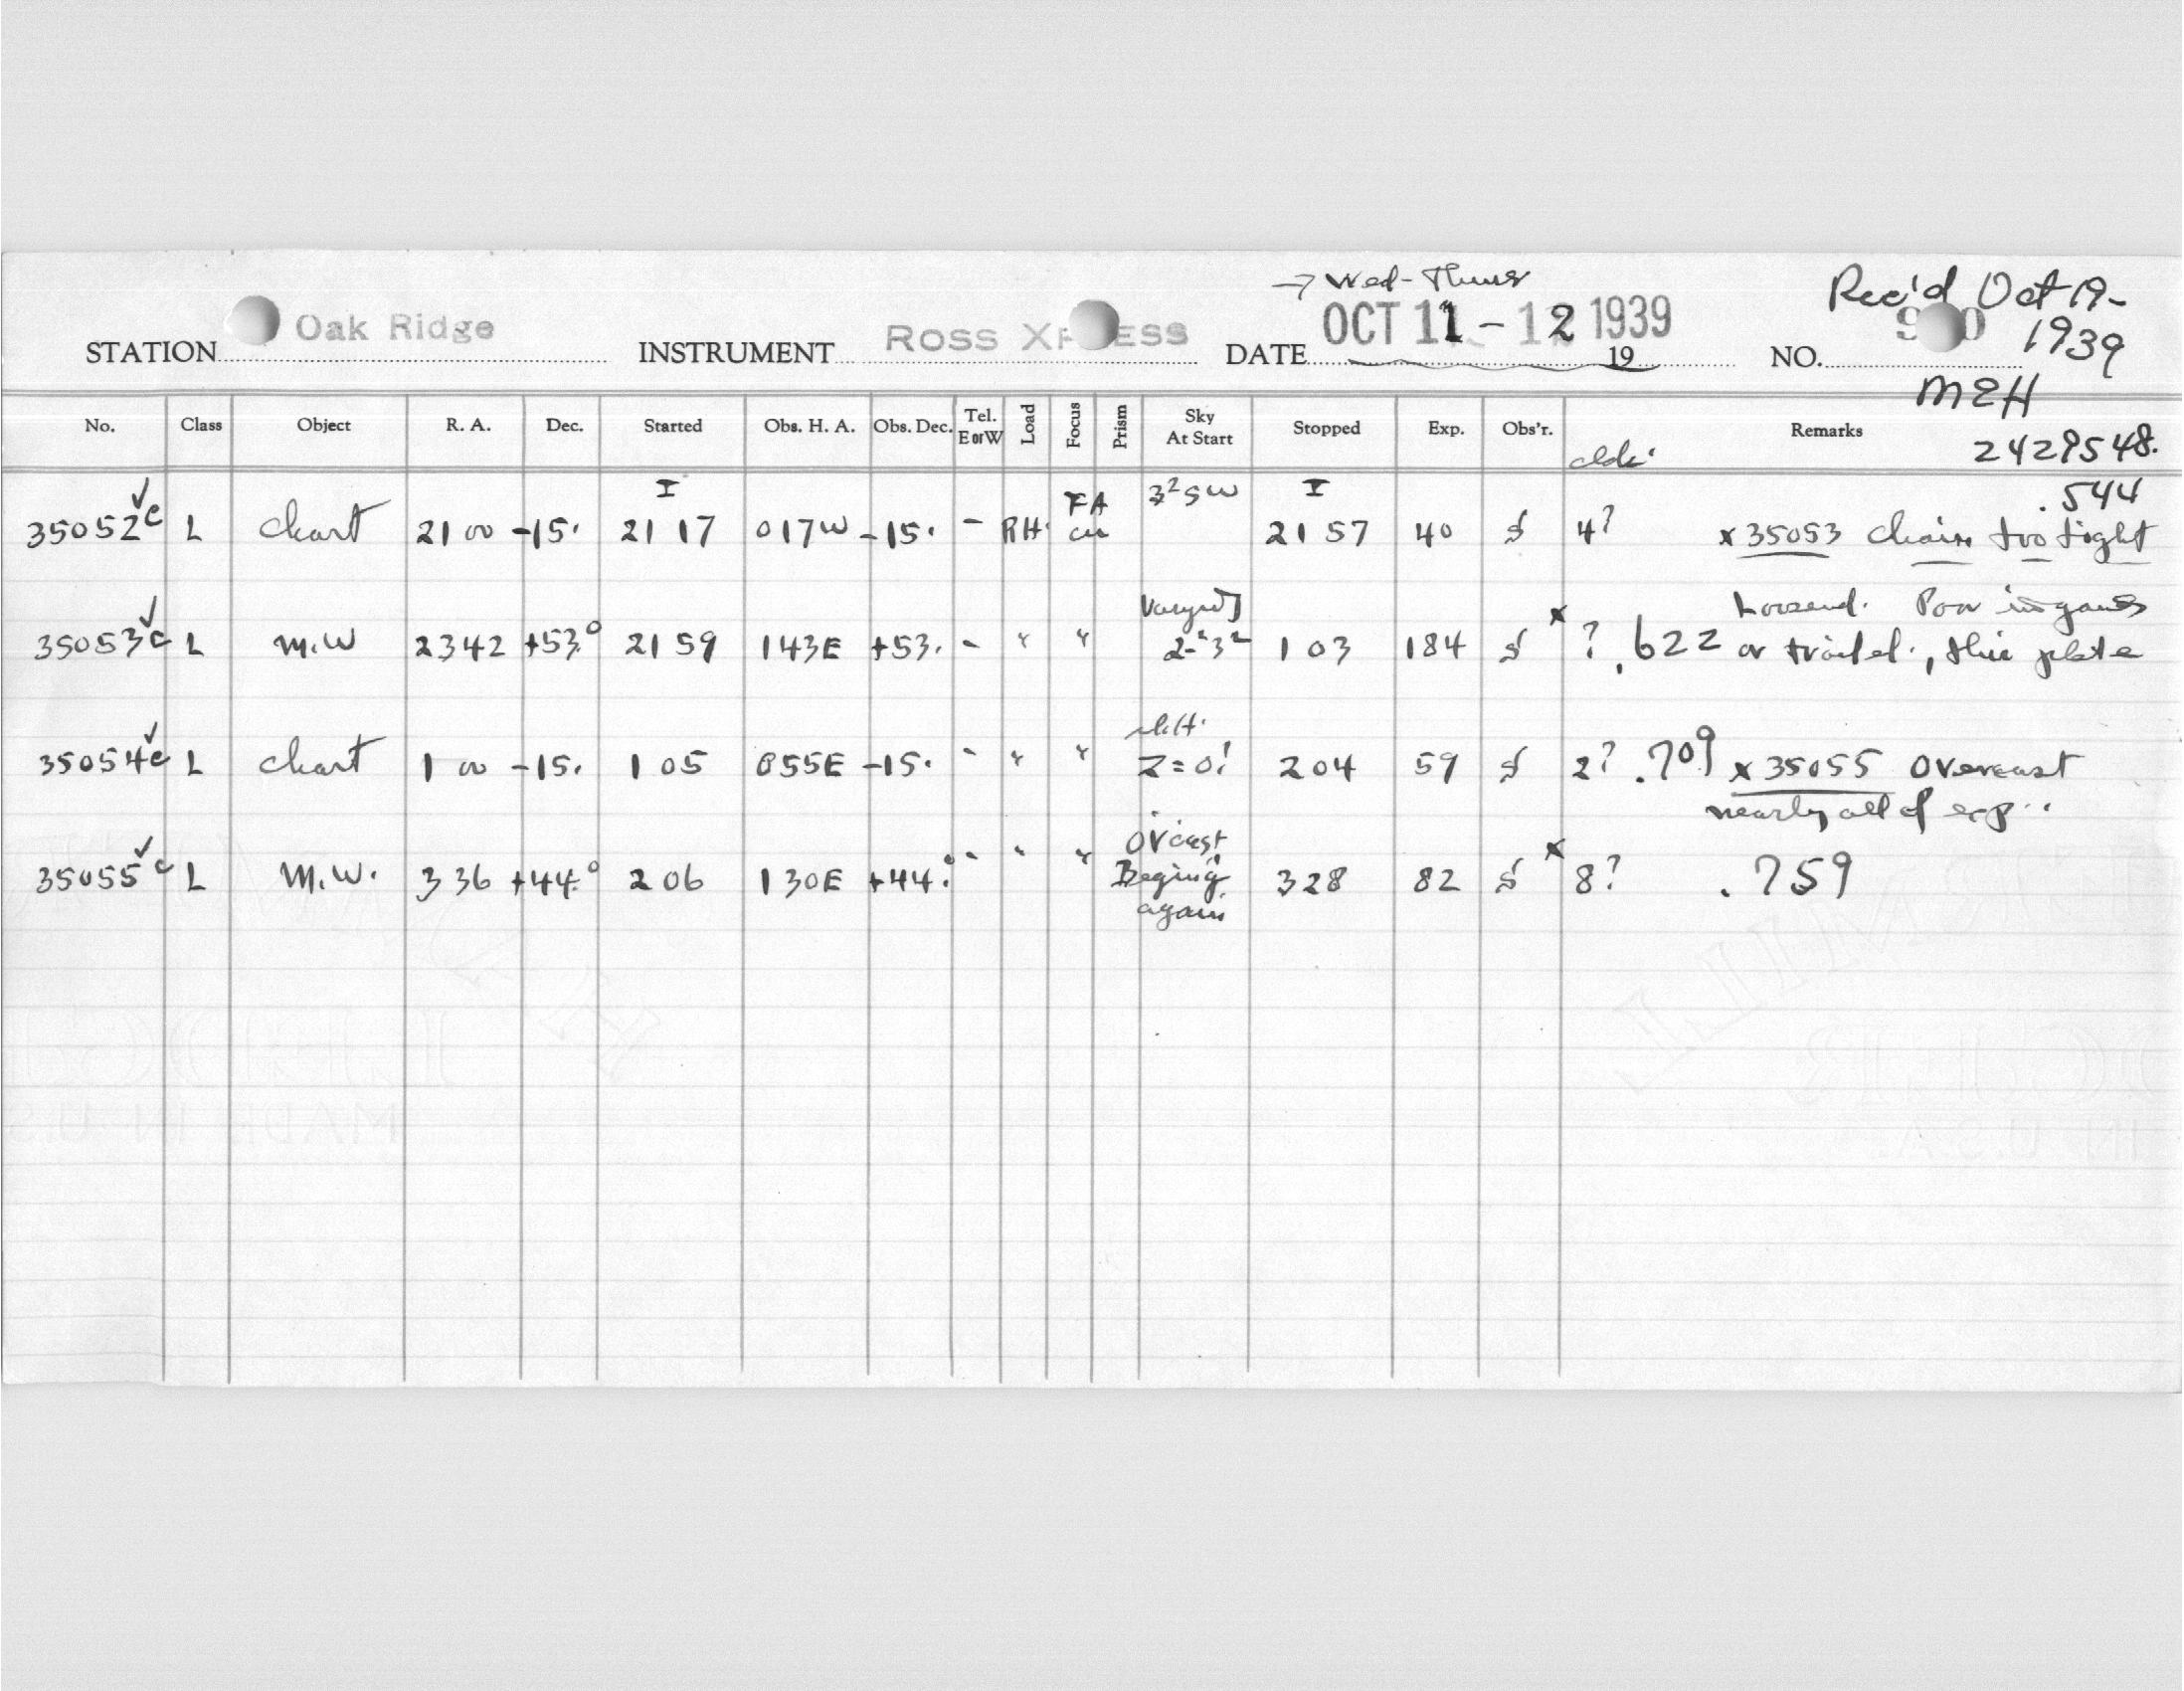 → Wed-Thurs
Rec'd Oct 19-
1939
STATION Oak Ridge INSTRUMENT ROSS XPRESS DATE OCT 11-12 1939 19 NO.
MEH
No. Class Object R. A. Dec. Started Obs. H. A. Obs. Dec. Tel. E or W Load Focus Prism Sky At Start Stopped Exp. Obs'r. Remarks
2429548.
I 3²SW I .544
35052c✓ L Chart 21 00 -15. 21 17 017W -15. - RH. FA 21 57 40 4? x 35053 chain too tight
Loosend. Poor images
35053c✓ L M.W 2342 +53° 21 59 143E +53. - " " 2-²3² 1 03 184 x ? .622 or trailed., this plate
35054c✓ L Chart 1 00 -15. 1 05 055E -15. - " " Z=0! 2 04 59 2? .709 x 35055 Overcast
nearly all of exp..
Ovcast
35055c✓ L M.W. 3 36 +44.° 2 06 130E +44.° - " " Beging 3 28 82 x 8? .759
again